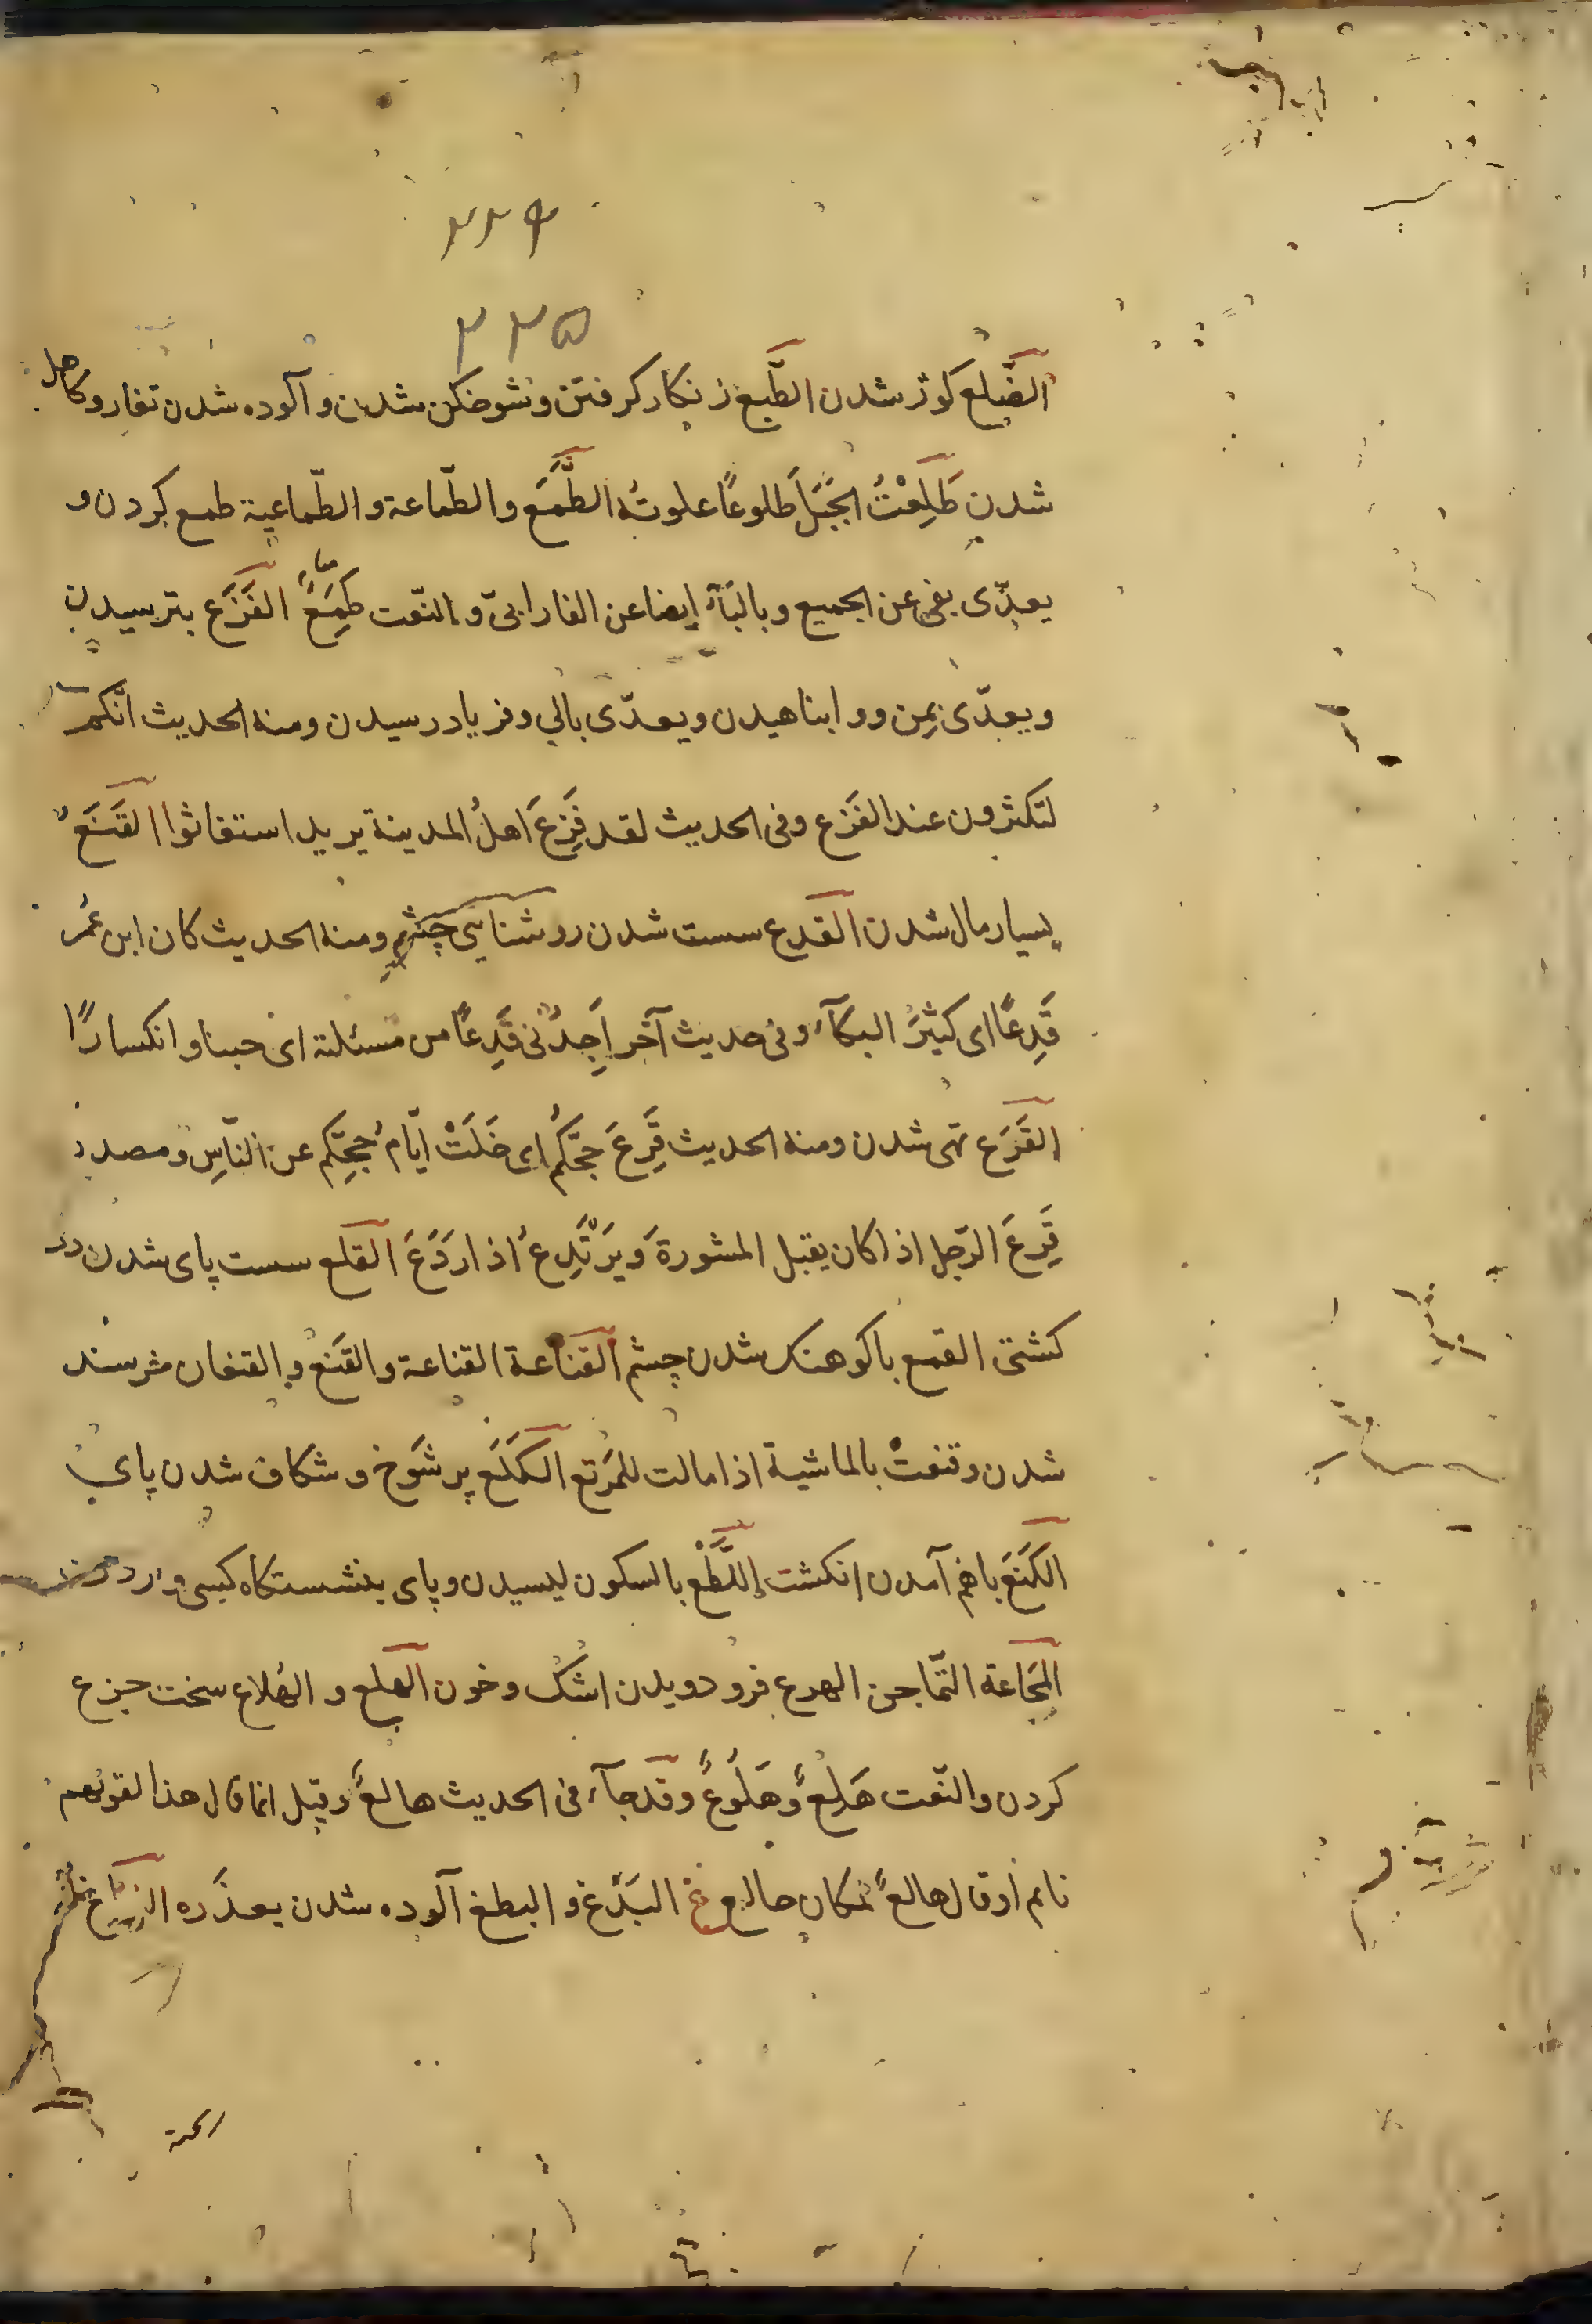 ۲۲۴
۲۲۵
الضَّلع كوژ شدن الطَّبع زنكار كرفتن وشوخكن شدن وآلوده شدن تفار وكاهل
شدن طَلِعْتُ الجَبَلَ طلوعًا علوتُه الطَّمَع والطّماعة والطّماعية طمع كردن و
يعدّى بفى عن الجميع وبالبآء ايضا عن الفارابىّ والنّعت طَمِعٌ الفَزَع بترسيدن
ويعدّى بِمِن ووا بناهيدن ويعدّى بالي وفرياد رسيدن ومنه الحديث انّكم
لتكثرون عند الفَزع وفى الحديث لقد فَزِعَ اهلُ المدينة يريد استغاثوا القَنَع
بسيار مال شدن القدع سست شدن روشنايى چشم ومنه الحديث كان ابن عُمر
قَدِعًا اى كثيرَ البكآء وفى حديث آخر اَجِدُنى قَدِعًا من مسئلة اى جبنا وانكسارًا
القَرَع تهى شدن ومنه الحديث قَرِعَ حجّكُم اى خَلَتْ ايّامُ حجّكِم عن النّاسِ ومصدر
قَرِعَ الرّجل اذا كان يقبل المشورةَ ويَرتَدِعُ اذا رَدَعَ القلع سست پاى شدن در
كشتى القمع باكوهنك شدن چشم القناعة القناعة والقَنَع والقنعان خرسند
شدن وقنعتْ بالماشية اذا مالت للمَرتع الكَلَع پر شَوخ وشكاف شدن پاي
الكَنَع باهم آمدن انكشت اللَّطْع بالسكون ليسيدن وپاى بنشستكاه كسى
المَجَاعة التّماجن الهرع فرو دويدن اشك وخون الهلع و الهُلاع سخت جزع
كردن والنّعت هَلِعٌ وهَلُوعٌ وقد جآء فى الحديث هالعٌ وقيل انما قال هذا لقولهم
نايم او قال هالعٌ لمكان خالع غ البَدَغ و البطغ آلوده شدن بعذَره